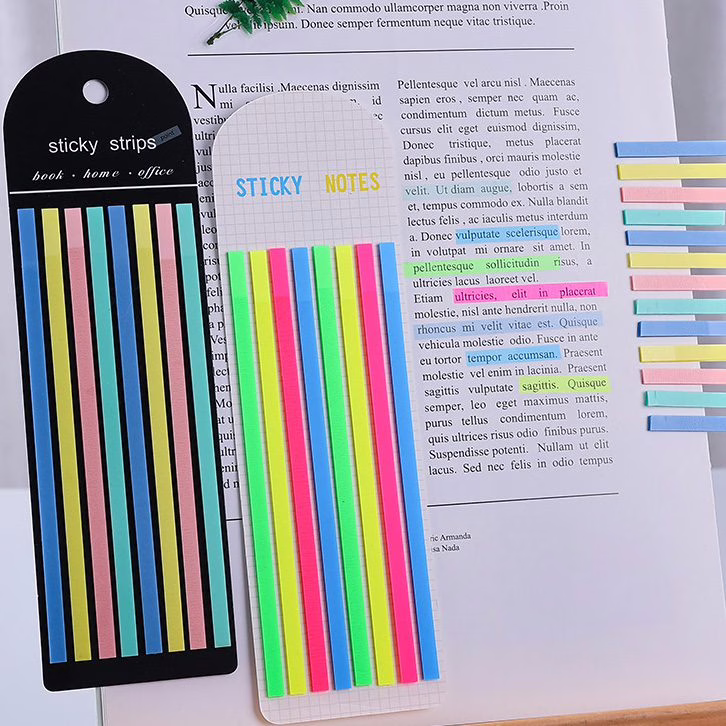 Quisque
. Nan commodo ullamcorper magna non viverra .Proin
vel ipsum. Donec semper fermentum neque vitae tristique.
sticky strips
point
book · home · office
STICKY NOTES
Nulla facilisi .Maecenas dignissim
mi id
Pellentesque vel arcu nisl . Maecenas
sapien eros , semper nec quam ac,
condimentum dictum metus. Fusce
cursus elit eget euismod dignissim,
Donec tristique, metus placerat
dapibus finibus , orci mauris molestie
nisl , eu pellentesque odio justo et
velit. Ut diam augue, lobortis a sem
et, tempus commodo ex. Nulla blandit
lectus felis , ac iaculis metus interdum
a. Donec vulputate scelerisque lorem,
in volutpat mi ornare sit amet. In
pellentesque sollicitudin risus, a
ultricies lacus laoreet vel.
Etiam ultricies, elit in placerat
molestie, nisl ante hendrerit nulla, non
rhoncus mi velit vitae est. Quisque
vehicula molestie odio. Fusce in ante
eu tortor tempor accumsan. Praesent
molestie vel enim in lacinia. Praesent
sagittis vulputate sagittis. Quisque
semper, leo eget maximus mattis,
purus tellus condimentum lorem,
quis ultrices risus odio finibus purus.
Suspendisse potenti. Nullam ut elit
lacus. Sed nec felis in odio tempus
Armanda
Nada